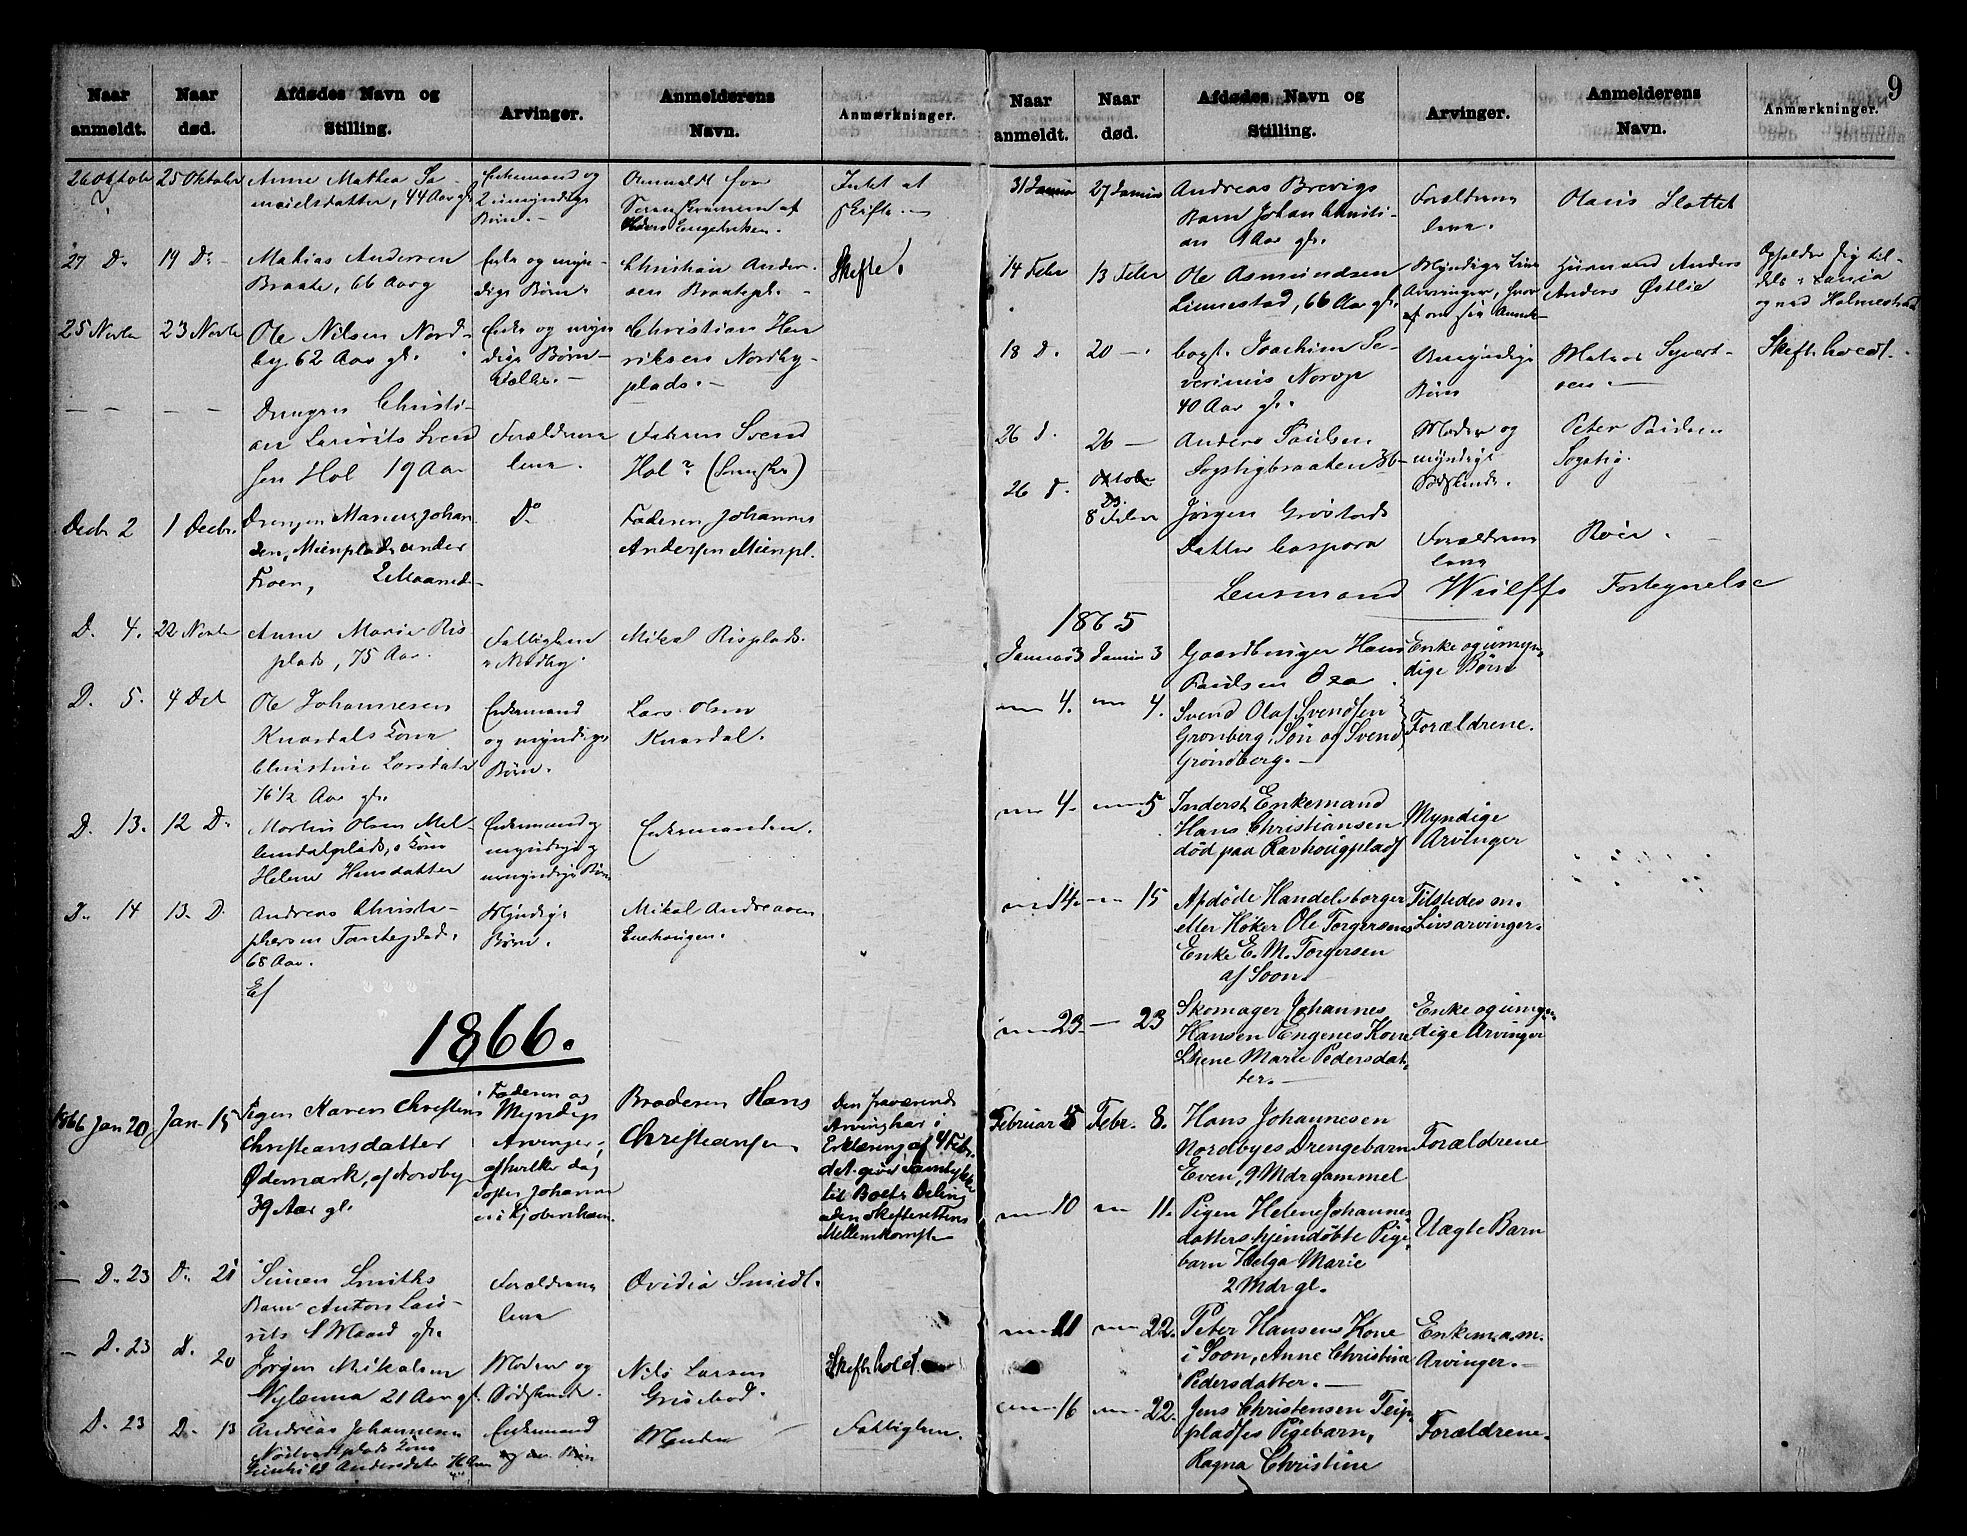 9
Naar anmeldt.
Naar død.
Afdødes Navn og Stilling.
Arvinger.
Anmelderens Navn.
Anmærkninger.
26 Oktobr
25 Oktober
Anne Mathea Sa-
muelsdatter, 44 Aar gl.
Enkemand og
2 umyndige
Børn.-
Anmeldt for
Intet at
skifte.
27 D.
19 D.
Mathias Andersen
Braate, 66 Aar g
Enke og myn-
dige Børn.
Christian Ander-
sen Braatepl.-
Skifte.
25 Novbr
23 Novbr
Ole Nilsen Nord-
by 62 Aar gl.
Enke og myn
dige Børn
Christian Hen
riksen Nordby-
plads.-
Drengen Christi-
an Laurits Svend
sen Hol 19 Aar
Forældrene
lever.
Faderen Svend
Hol
Decbr 2
1 Decbr.
Drengen Marius Johan
sen, Mienplads under
Froen, 2 Maaned
Do
Faderen Johannes
Andersen Mienpl.
D. 4.
22 Novbr
Anne Marie Ris-
plads, 75 Aar.
Fattiglem
i Nordby.
Mikal Risplads.
D. 5.
4 Det
Ole Johannesen
Knardals Kone
Christine Larsdatr
76 1/2 Aar gl.
Enkemand
og myndige
Børn.
Lars Olsen
Knardal.
D. 13.
12 D.
Martin Olsen Mel-
lemdalsplads, s Kone
Helene Hansdatter
Enkemand og
myndige og
umyndige Børn
Enkemanden.
D. 14
13. D.
Andreas Christo-
phersen
68 Aar.
Myndige
Børn.
Mikal Andreasen
Enehougen.
1866.
1866 Jan 20
Jan. 15
Pigen Karen Christens
Christiansdatter
Ødemark, af Nordby
39 Aar gl.
Faderen og
Myndige
Arvinger,
afhvilke dog
Johanne
er i Kjøbenhavn.
Broderen Hans
Christiansen
Den fraværende
Arving har i
Erklæring af 4 Febr.
det givet Samtykke
til Boets Deling
uden Skifterettens
Mellemkomst
D. 23
D. 21
Simen Smiths
Barn Anton Lau-
rits 1 Maaned gl.
Forældrene
lever
Ovidia Smidt.
D. 23
D. 20
Jørgen Mikalsen
Nylænna 21 Aar gl.
Moder og
Sødskende.
Nils Larsen
Grisebod.
Skifte holdt
D. 23
D. 13
Andreas Johannesen
Enkemand
og Børn
Fattiglem.
Naar anmeldt.
Naar død.
Afdødes Navn og Stilling.
Arvinger.
Anmelderens Navn.
Anmærkninger.
31 Januar
27 Januar
Andreas Brevigs
Barn Johan Christi-
an 1 Aar gl.
Forældrene
lever.
Hans Slottet
14 Febr
13 Febr
Ole Asmundsen
Linnestad, 66 Aar gl.
Myndige Livs
Arvinger, hvor
Husmand Anders
Anders Østlie
Opholder sig til-
dels i
og ved Holmestrand
18 D.
20 —
Logt. Joachim Se-
verinus Norop
40 Aar gl.
Umyndige
Børn
Mathias Syvert-
sen.-
Skifte holdt.
26 D.
26 —
Anders Paulsen
36-
Moder og
myndige
Sødskende.
Peter
26 D.
Oktobr
8 Febr
Jørgen Grøstads
Datter Caspara
Forældrene
leve
Røer.
Lensmand Wulffs Fortegnelse
1865
Januar 3
Januar 3
Gaardbruger Hans
Paulsen Oxa
Enke og umyn-
dige Børn
" 4.
" 4.
Svend Olaf Svendsen
Grønberg, Søn og Svend
Grøndberg.-
Forældrene.
" 4.
" 5
Inderst, Enkemand
Hans Christiansen
død paa Ravhougplads
Myndige
Arvinger
" 14.
" 15
Afdøde Handelsborger
eller Høker Ole Torgersens
Enke E. M. Torgersen
af Soon.
Tilstedes m.
Livsarvinger.
" 23.
— 23
Skomager Johannes
Hansen Engenes Kone
Lhene Marie Pedersdat-
ter.-
Enke og umyn-
dige Arvinger
Februar 5
Febr. 8.
Hans Johannesen
Nordbyes Drengebarn
Even, 9 Mdr gammel
Forældrene
" 10
" 11.
Pigen Helene Johannes
datters hjemdøbte Pige-
barn Helga Marie
2 Mdr gl.
Uægte Barn
" 21
" 22.
Peter Hansens Kone
i Soon, Anne Christina
Pedersdatter.-
Enkem a. m.
Arvinger.-
" 16
" 22.
Jens Christensen Teip-
pladses Pigebarn,
Ragna Christine
Forældrene.